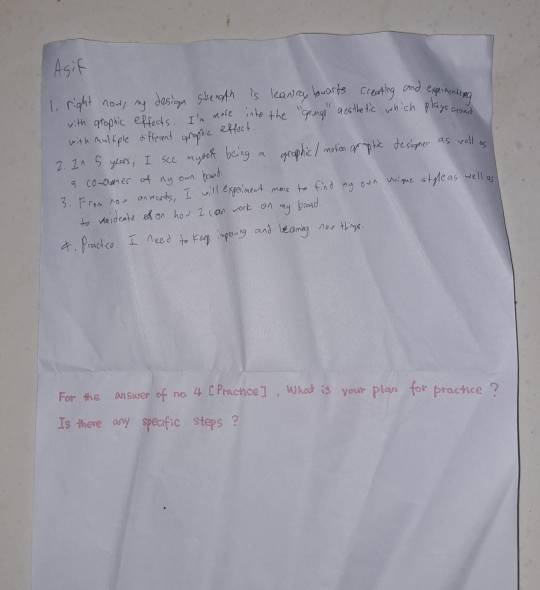 Asif
1. right now, my design strength is leaning towards creating and experimenting
with graphic effects. I'm more into the "grungy" aesthetic which plays around
with multiple different graphic effect.
2. In 5 years, I see myself being a graphic/motion graphic designer as well as
a co-owner of my own brand.
3. From now onwards, I will expeiment more to find my own unique style as well as
to on how I can work on my brand
4. Practice. I need to keep and learning new things.
For the answer of no 4 [Practice], What is your plan for practice?
Is there any specific steps?